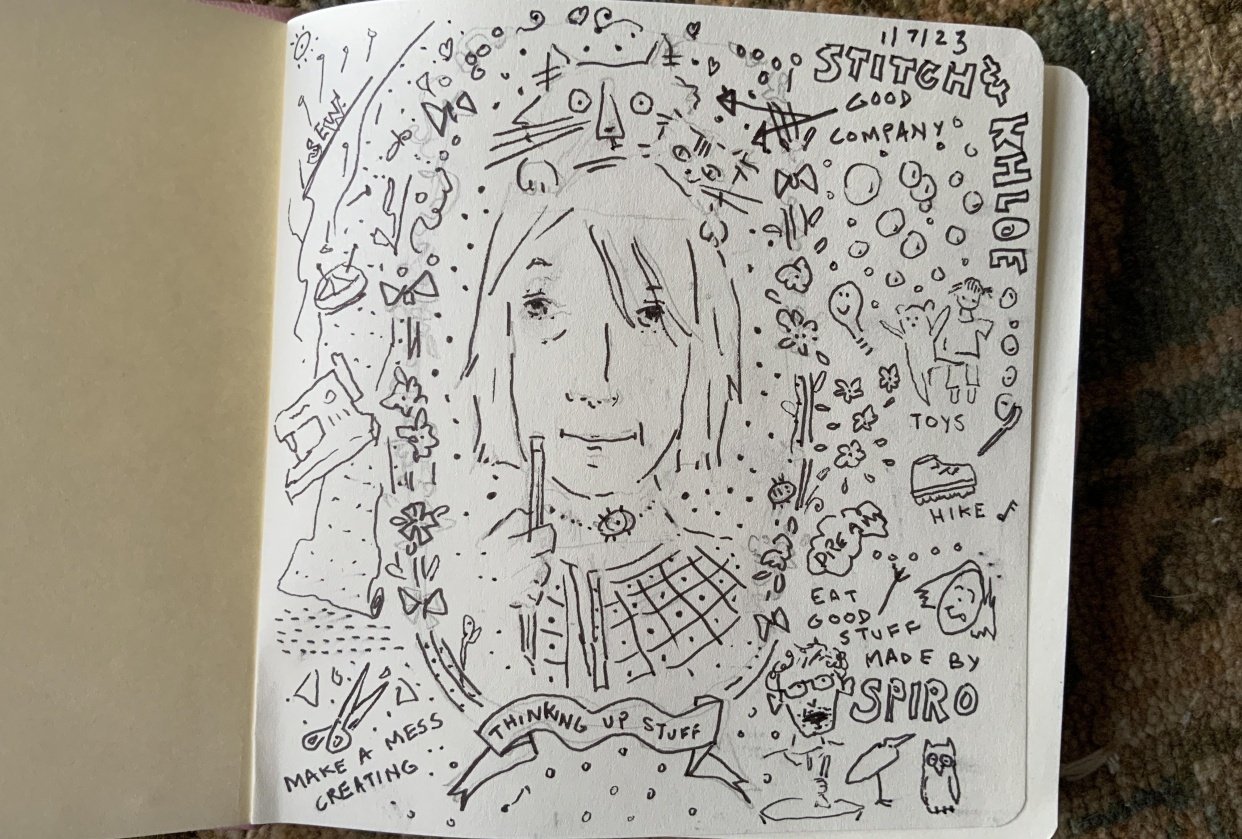 1/7/23
STITCH &
KHLOE
GOOD
COMPANY
SEW
TOYS
HIKE
EAT
GOOD
STUFF
MADE BY
SPIRO
THINKING UP STUFF
MAKE A MESS
CREATING